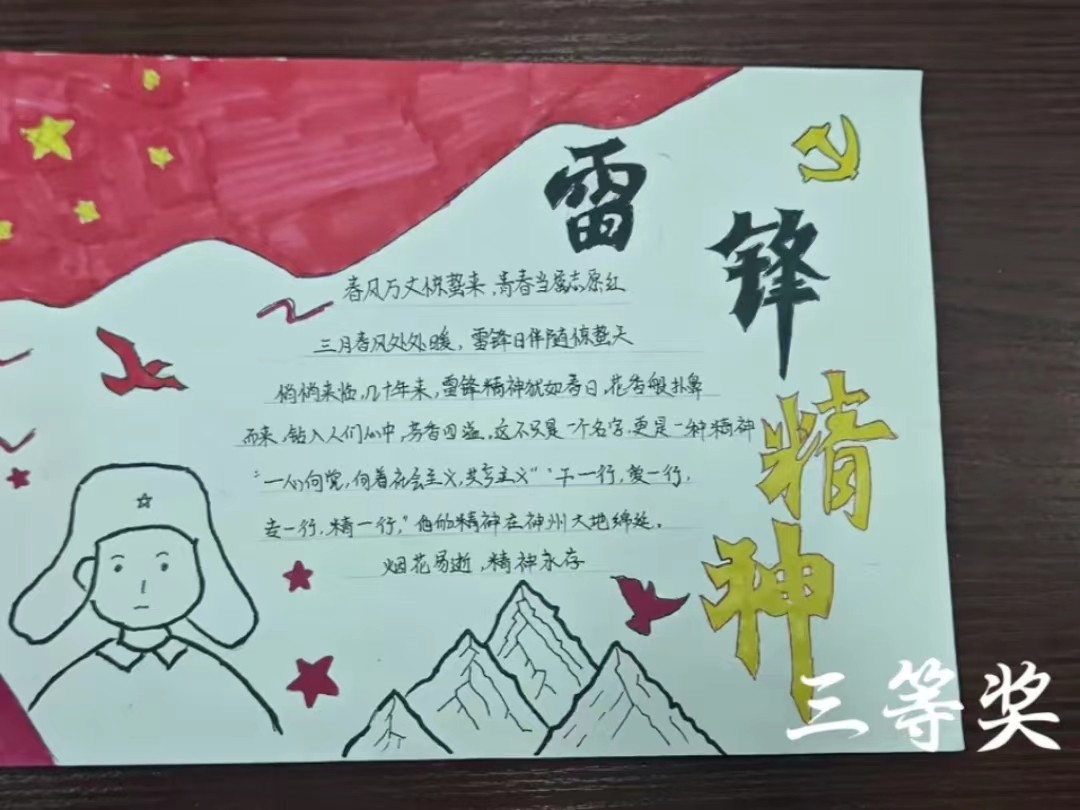 雷锋精神
春风万丈惊蛰来，青春当属志愿红
三月春风处处暖，雷锋日伴随惊蛰天
悄悄来临，几十年来，雷锋精神犹如春日，花香般扑鼻
而来，钻入人们心中，芳香四溢，这不只是一个名字，更是一种精神
“一心向党，向着社会主义，共产主义”“干一行，爱一行，
专一行，精一行，”他的精神在神州大地绵延。
烟花易逝，精神永存
三等奖